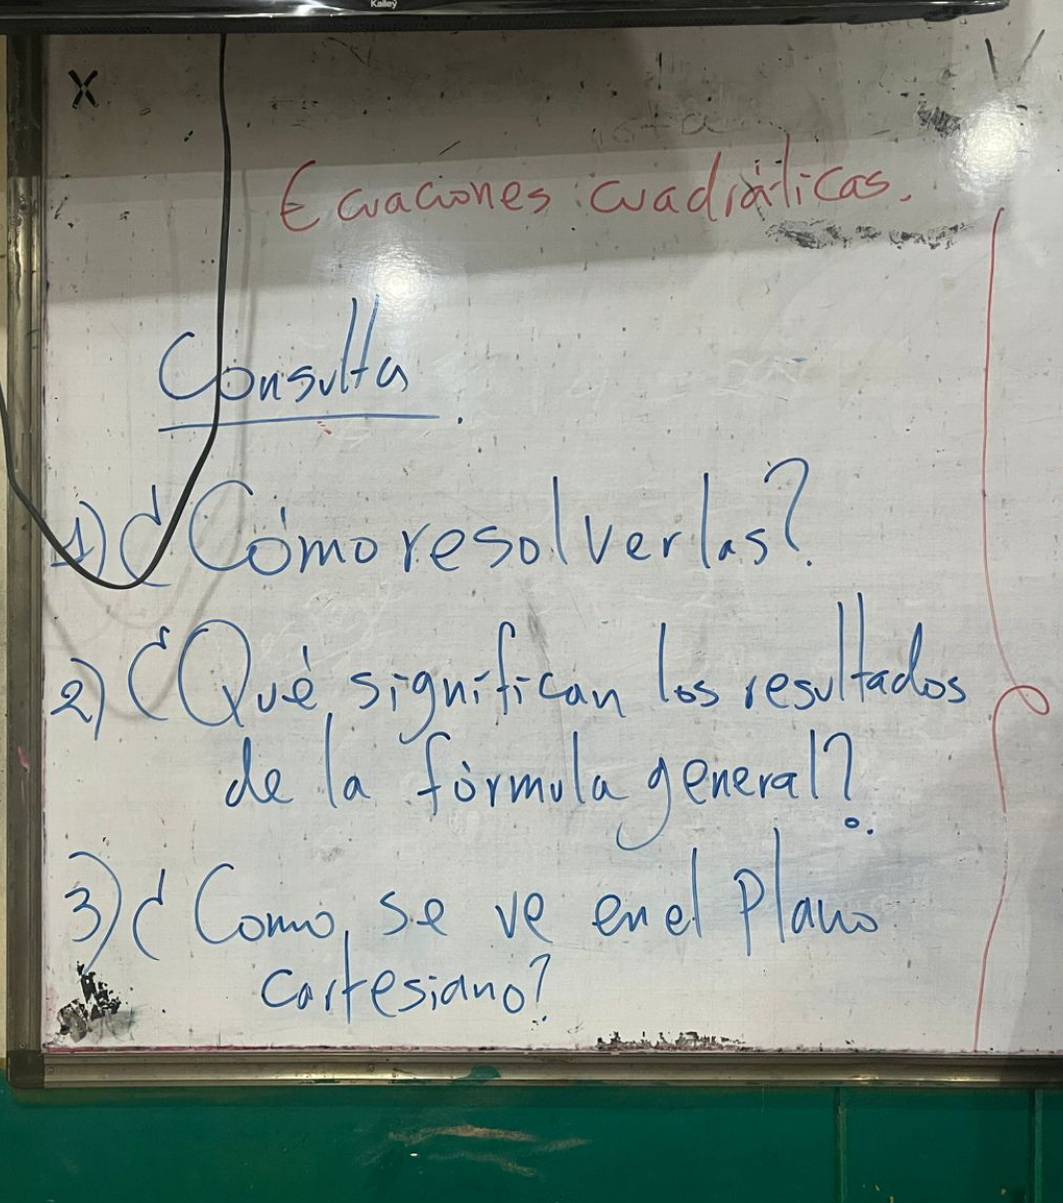 Kalley
X
Ecuaciones cuadráticas.
Consulta.
1) ¿Cómo resolverlas?
2) ¿Qué significan los resultados
de la fórmula general?
3) ¿Como se ve en el plano
cartesiano?